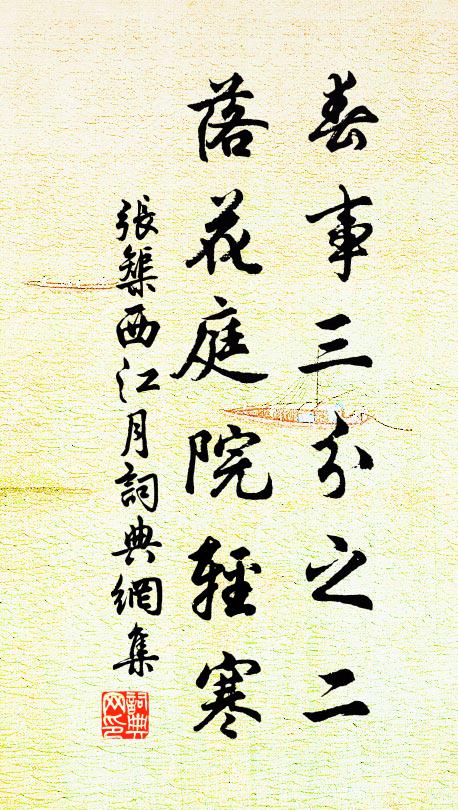 春事三分之二
落花庭院輕寒
張榘西江月詞典網集
詞典
网印